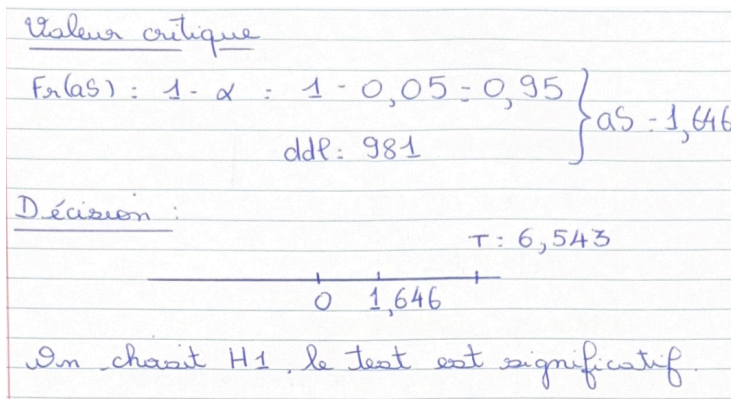 Valeur critique
Fr(aS) : 1 - α = 1 - 0,05 = 0,95
ddl : 981
aS = 1,646
Décision :
T : 6,543
0 1,646
On choisit H1, le test est significatif.